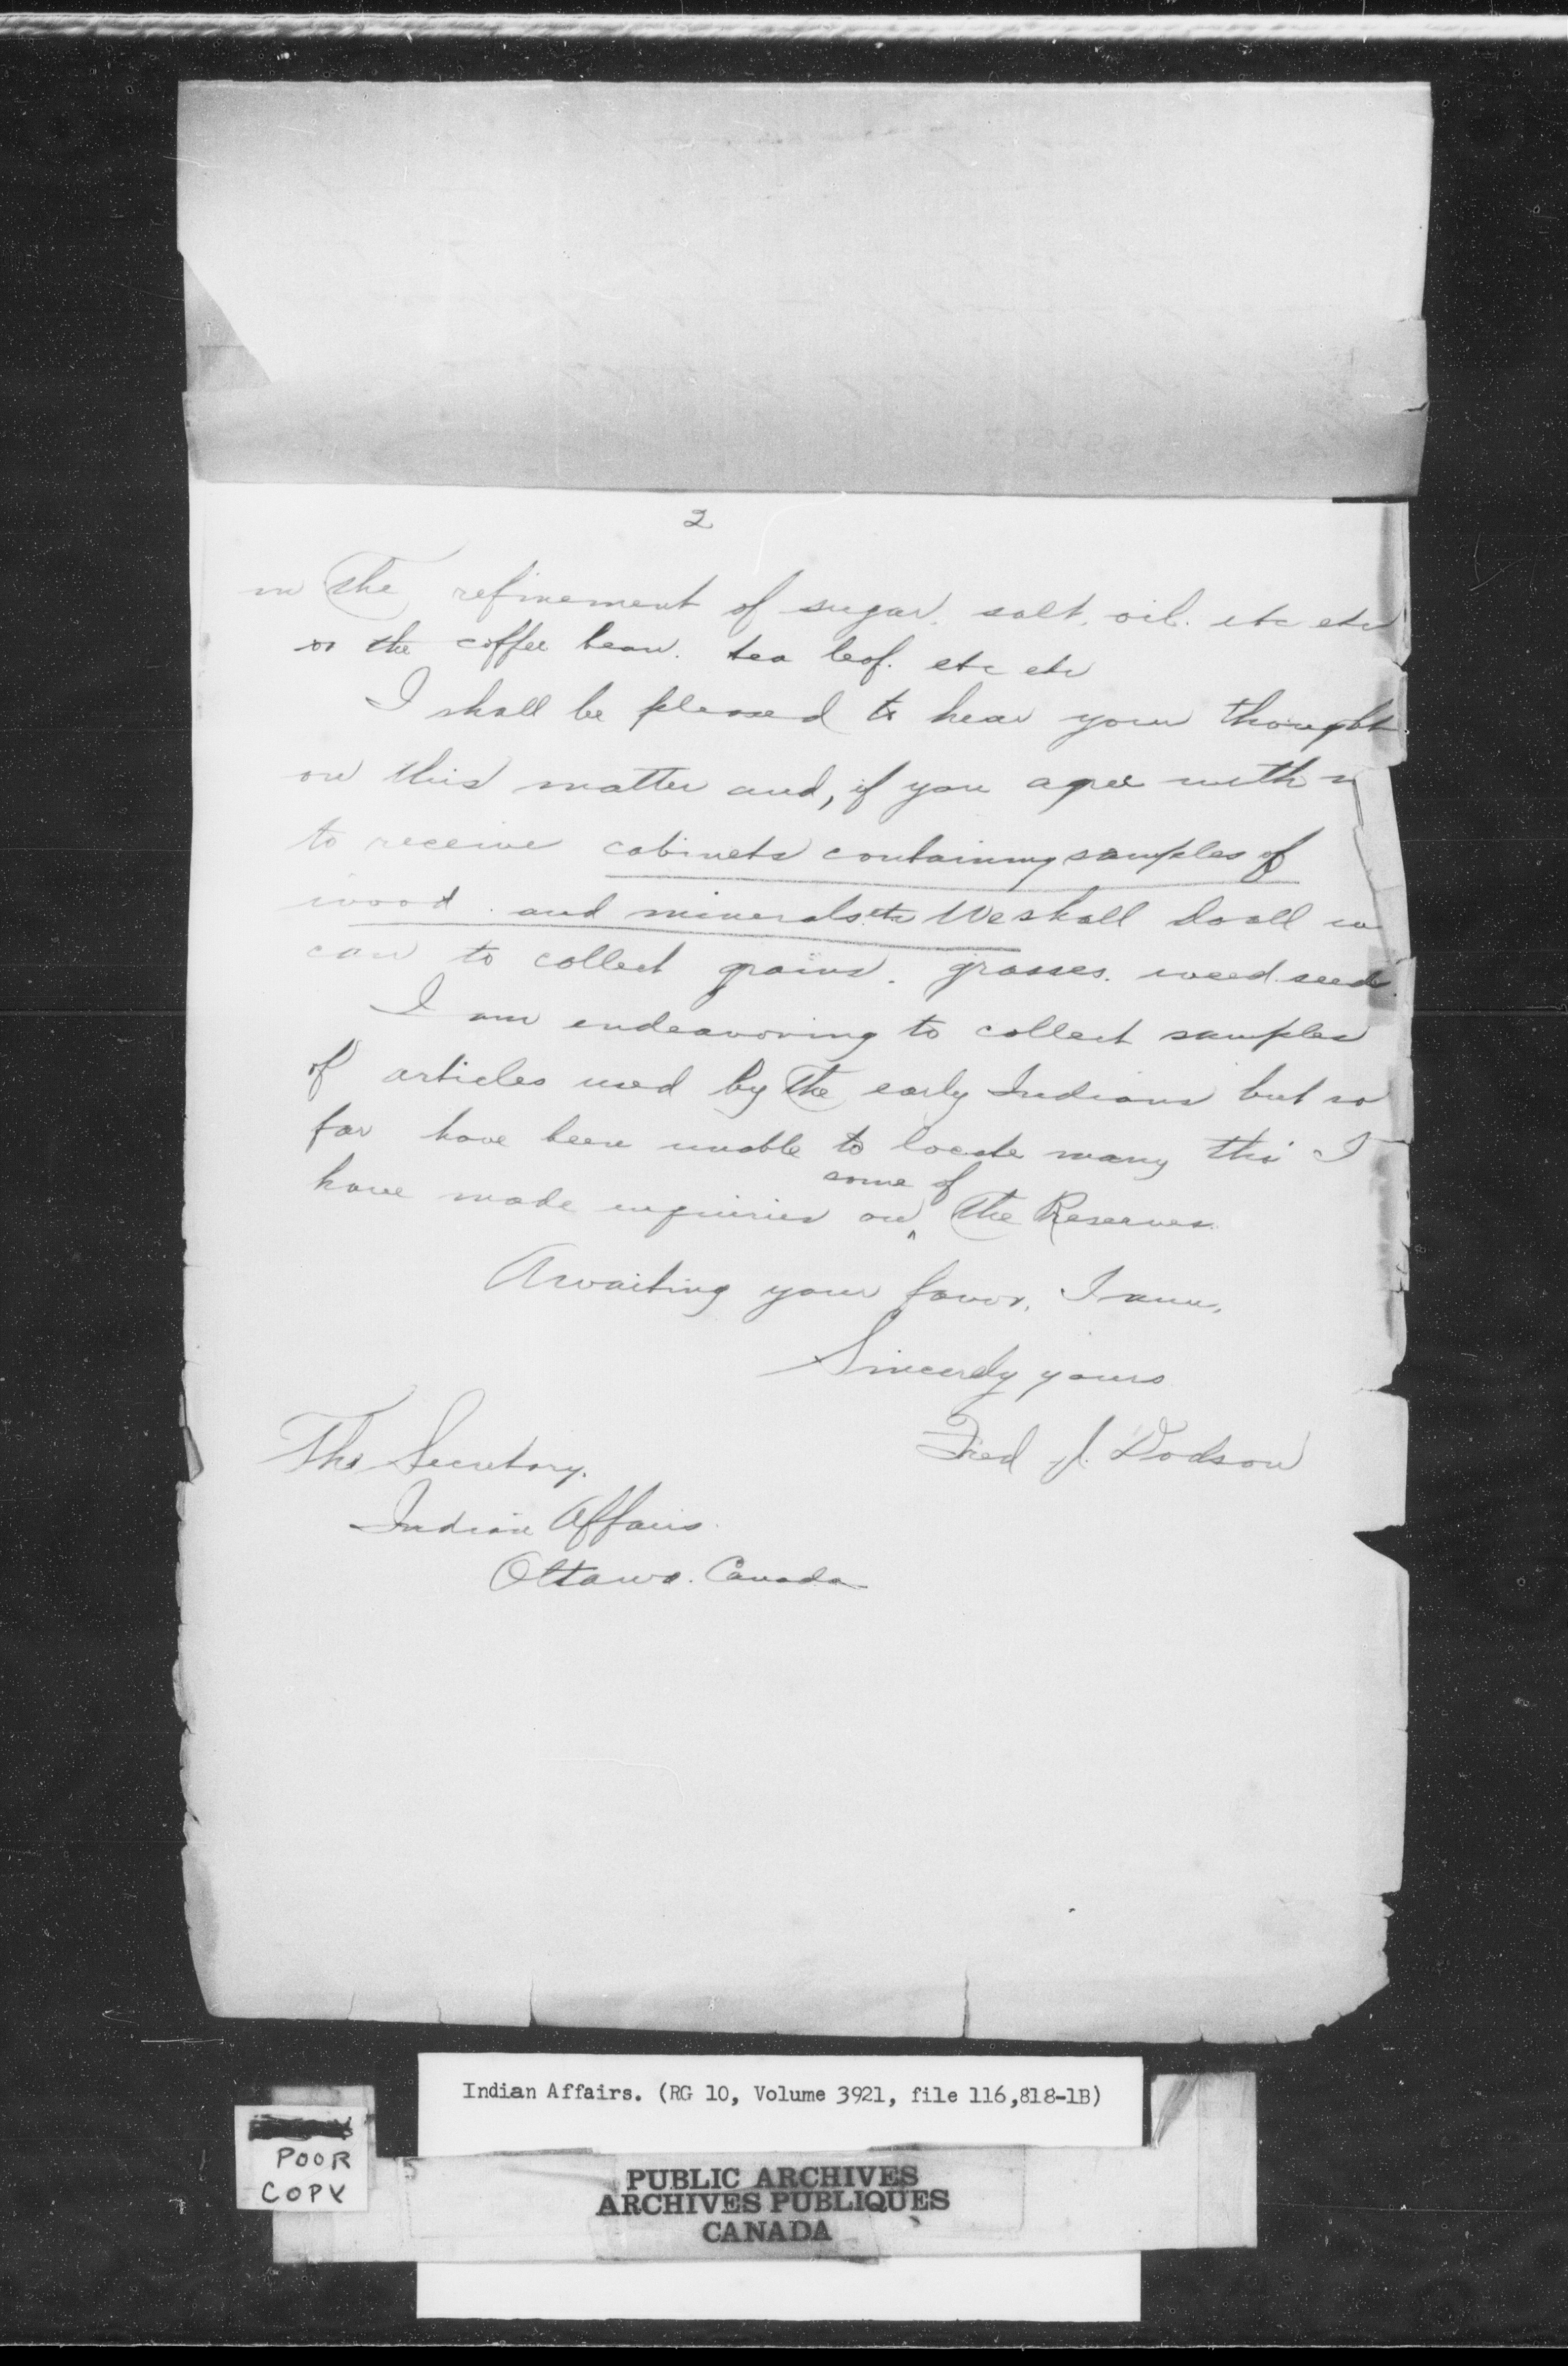 2
in the refinement of sugar. salt. oil. etc etc
or the coffee bean. tea leaf. etc etc
I shall be pleased to hear your thought
on this matter and, if you agree with
to receive cabinets containing samples of
wood. and minerals etc We shall do all
can to collect grains. grasses. weed seeds.
I am endeavoring to collect samples
of articles used by the early Indians but so
far have been unable to locate many tho I
have made inquiries on some of the Reserves.
Awaiting your favor, I am,
Sincerely yours
Fred J. Dodson
The Secretary.
Indian Affairs.
Ottawa. Canada
Indian Affairs. (RG 10, Volume 3921, file 116,818-1B)
POOR
COPY
PUBLIC ARCHIVES
ARCHIVES PUBLIQUES
CANADA